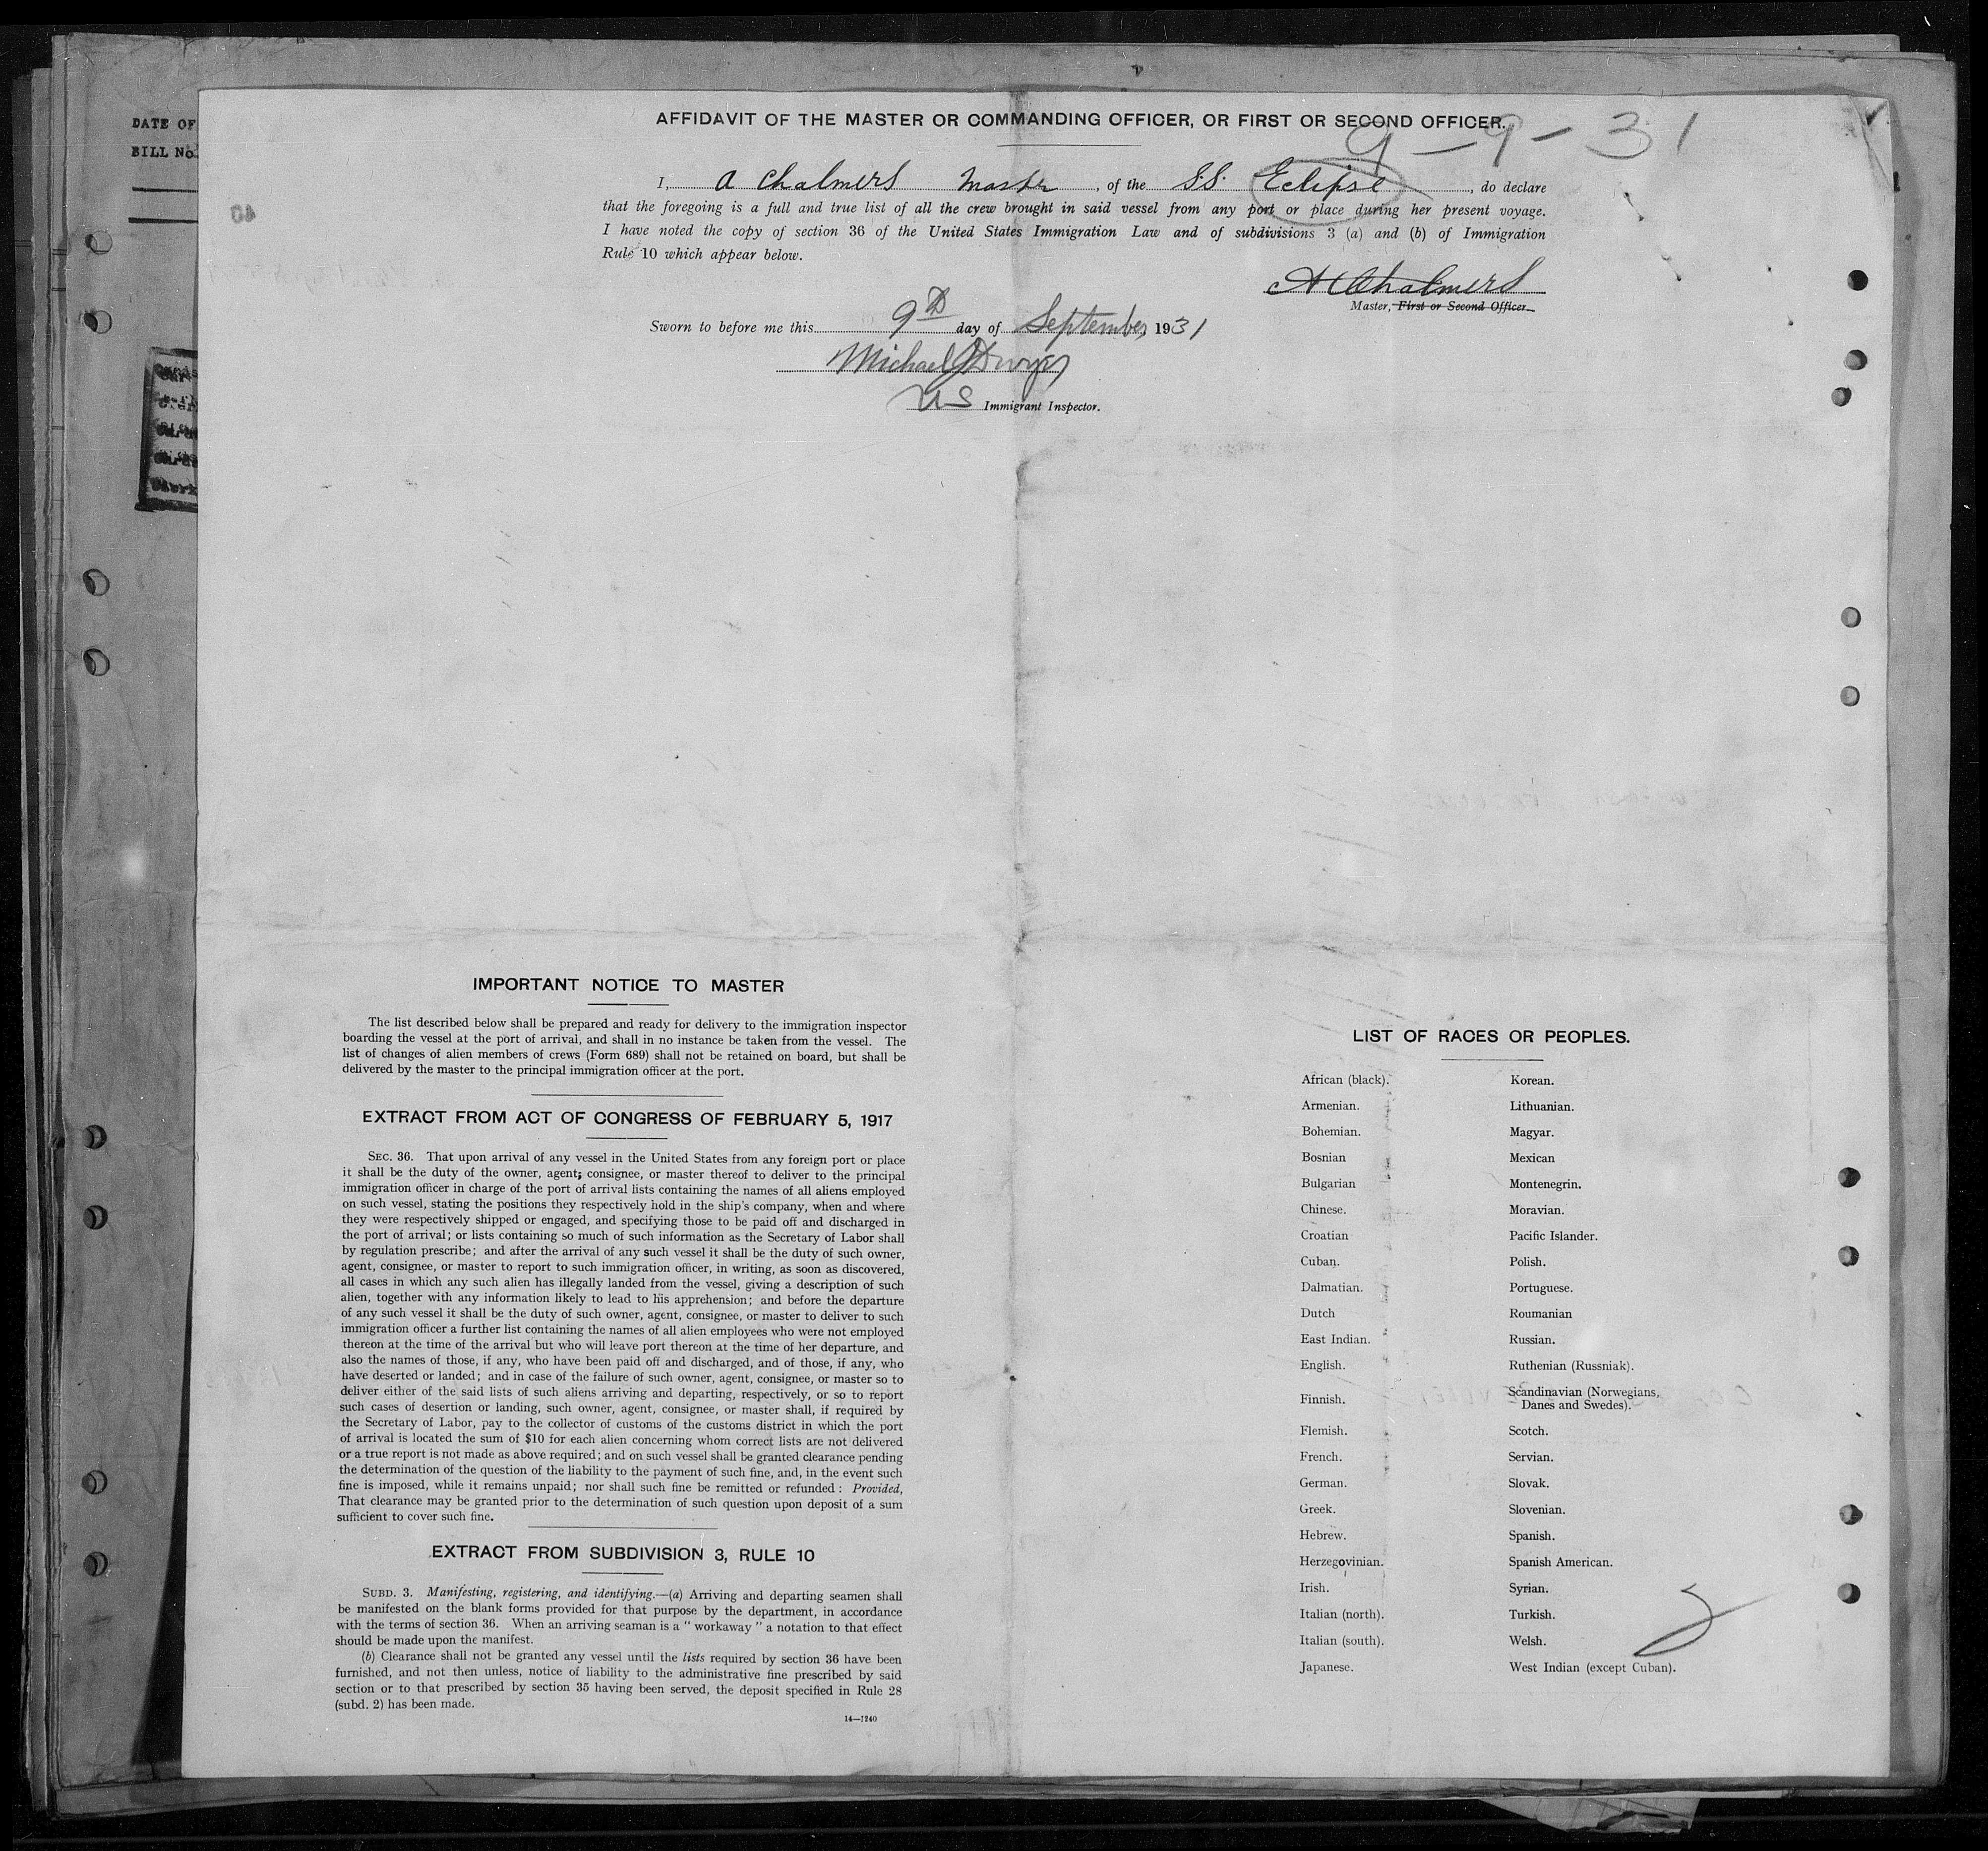 DATE OF
BILL No.
AFFIDAVIT OF THE MASTER OR COMMANDING OFFICER, OR FIRST OR SECOND OFFICER.
9-9-31
I, A Chalmers Master, of the S.S. Eclipse, do declare
that the foregoing is a full and true list of all the crew brought in said vessel from any port or place during her present voyage.
I have noted the copy of section 36 of the United States Immigration Law and of subdivisions 3 (a) and (b) of Immigration
Rule 10 which appear below.
A Chalmers
Master, First or Second Officer.
Sworn to before me this 9th day of September, 1931
Michael
US Immigrant Inspector.
IMPORTANT NOTICE TO MASTER
The list described below shall be prepared and ready for delivery to the immigration inspector
boarding the vessel at the port of arrival, and shall in no instance be taken from the vessel. The
list of changes of alien members of crews (Form 689) shall not be retained on board, but shall be
delivered by the master to the principal immigration officer at the port.
EXTRACT FROM ACT OF CONGRESS OF FEBRUARY 5, 1917
SEC. 36. That upon arrival of any vessel in the United States from any foreign port or place
it shall be the duty of the owner, agent, consignee, or master thereof to deliver to the principal
immigration officer in charge of the port of arrival lists containing the names of all aliens employed
on such vessel, stating the positions they respectively hold in the ship's company, when and where
they were respectively shipped or engaged, and specifying those to be paid off and discharged in
the port of arrival; or lists containing so much of such information as the Secretary of Labor shall
by regulation prescribe; and after the arrival of any such vessel it shall be the duty of such owner,
agent, consignee, or master to report to such immigration officer, in writing, as soon as discovered,
all cases in which any such alien has illegally landed from the vessel, giving a description of such
alien, together with any information likely to lead to his apprehension; and before the departure
of any such vessel it shall be the duty of such owner, agent, consignee, or master to deliver to such
immigration officer a further list containing the names of all alien employees who were not employed
thereon at the time of the arrival but who will leave port thereon at the time of her departure, and
also the names of those, if any, who have been paid off and discharged, and of those, if any, who
have deserted or landed; and in case of the failure of such owner, agent, consignee, or master so to
deliver either of the said lists of such aliens arriving and departing, respectively, or so to report
such cases of desertion or landing, such owner, agent, consignee, or master shall, if required by
the Secretary of Labor, pay to the collector of customs of the customs district in which the port
of arrival is located the sum of $10 for each alien concerning whom correct lists are not delivered
or a true report is not made as above required; and on such vessel shall be granted clearance pending
the determination of the question of the liability to the payment of such fine, and, in the event such
fine is imposed, while it remains unpaid; nor shall such fine be remitted or refunded: Provided,
That clearance may be granted prior to the determination of such question upon deposit of a sum
sufficient to cover such fine.
EXTRACT FROM SUBDIVISION 3, RULE 10
SUBD. 3. Manifesting, registering, and identifying.—(a) Arriving and departing seamen shall
be manifested on the blank forms provided for that purpose by the department, in accordance
with the terms of section 36. When an arriving seaman is a "workaway" a notation to that effect
should be made upon the manifest.
(b) Clearance shall not be granted any vessel until the lists required by section 36 have been
furnished, and not then unless, notice of liability to the administrative fine prescribed by said
section or to that prescribed by section 35 having been served, the deposit specified in Rule 28
(subd. 2) has been made.
14—1240
LIST OF RACES OR PEOPLES.
African (black).
Armenian.
Bohemian.
Bosnian
Bulgarian
Chinese.
Croatian
Cuban.
Dalmatian.
Dutch
East Indian.
English.
Finnish.
Flemish.
French.
German.
Greek.
Hebrew.
Herzegovinian.
Irish.
Italian (north).
Italian (south).
Japanese.
Korean.
Lithuanian.
Magyar.
Mexican
Montenegrin.
Moravian.
Pacific Islander.
Polish.
Portuguese.
Roumanian
Russian.
Ruthenian (Russniak).
Scandinavian (Norwegians,
Danes and Swedes).
Scotch.
Servian.
Slovak.
Slovenian.
Spanish.
Spanish American.
Syrian.
Turkish.
Welsh.
West Indian (except Cuban).